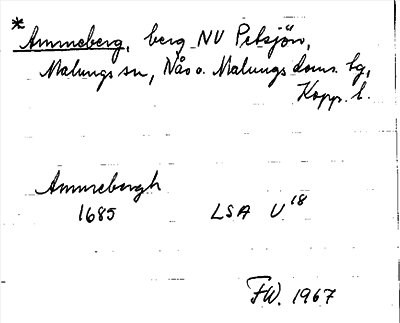 *
Ammeberg, berg NV Petsjön,
Malungs sn, Nås o. Malungs doms. hg,
Kopp. l.
Ammebergh
1685 LSA U18
FW. 1967